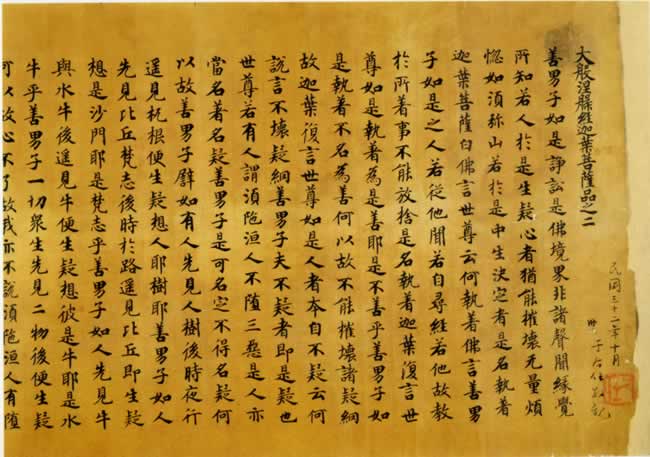 民國三十二年十月
大般涅槃經迦葉菩薩品之二
善男子如是諍訟是佛境界非諸聲聞緣覺
所知若人於是生疑心者猶能摧壞无量煩
惚如須弥山若於是中生决定者是名執著
迦葉菩薩白佛言世尊云何執着佛言善男
子如是之人若從他聞若自尋經若他故教
於所着事不能放捨是名執着迦葉復言世
尊如是執着為是善耶是不善乎善男子如
是執着不名為善何以故不能摧壞諸疑網
故迦葉復言世尊如是人者本自不疑云何
說言不壞疑網善男子夫不疑者即是疑也
世尊若有人謂須陁洹人不墮三惡是人亦
當名著名疑善男子是可名定不得名疑何
以故善男子譬如有人先見人樹後時夜行
遥見杌根便生疑想人耶樹耶善男子如人
先見比丘梵志後時於路遥見比丘即生疑
想是沙門耶是梵志乎善男子如人先見牛
與水牛後遥見牛便生疑想彼是牛耶是水
牛乎善男子一切衆生先見二物後便生疑
何以故心不了故我亦不說須陁洹人有墮